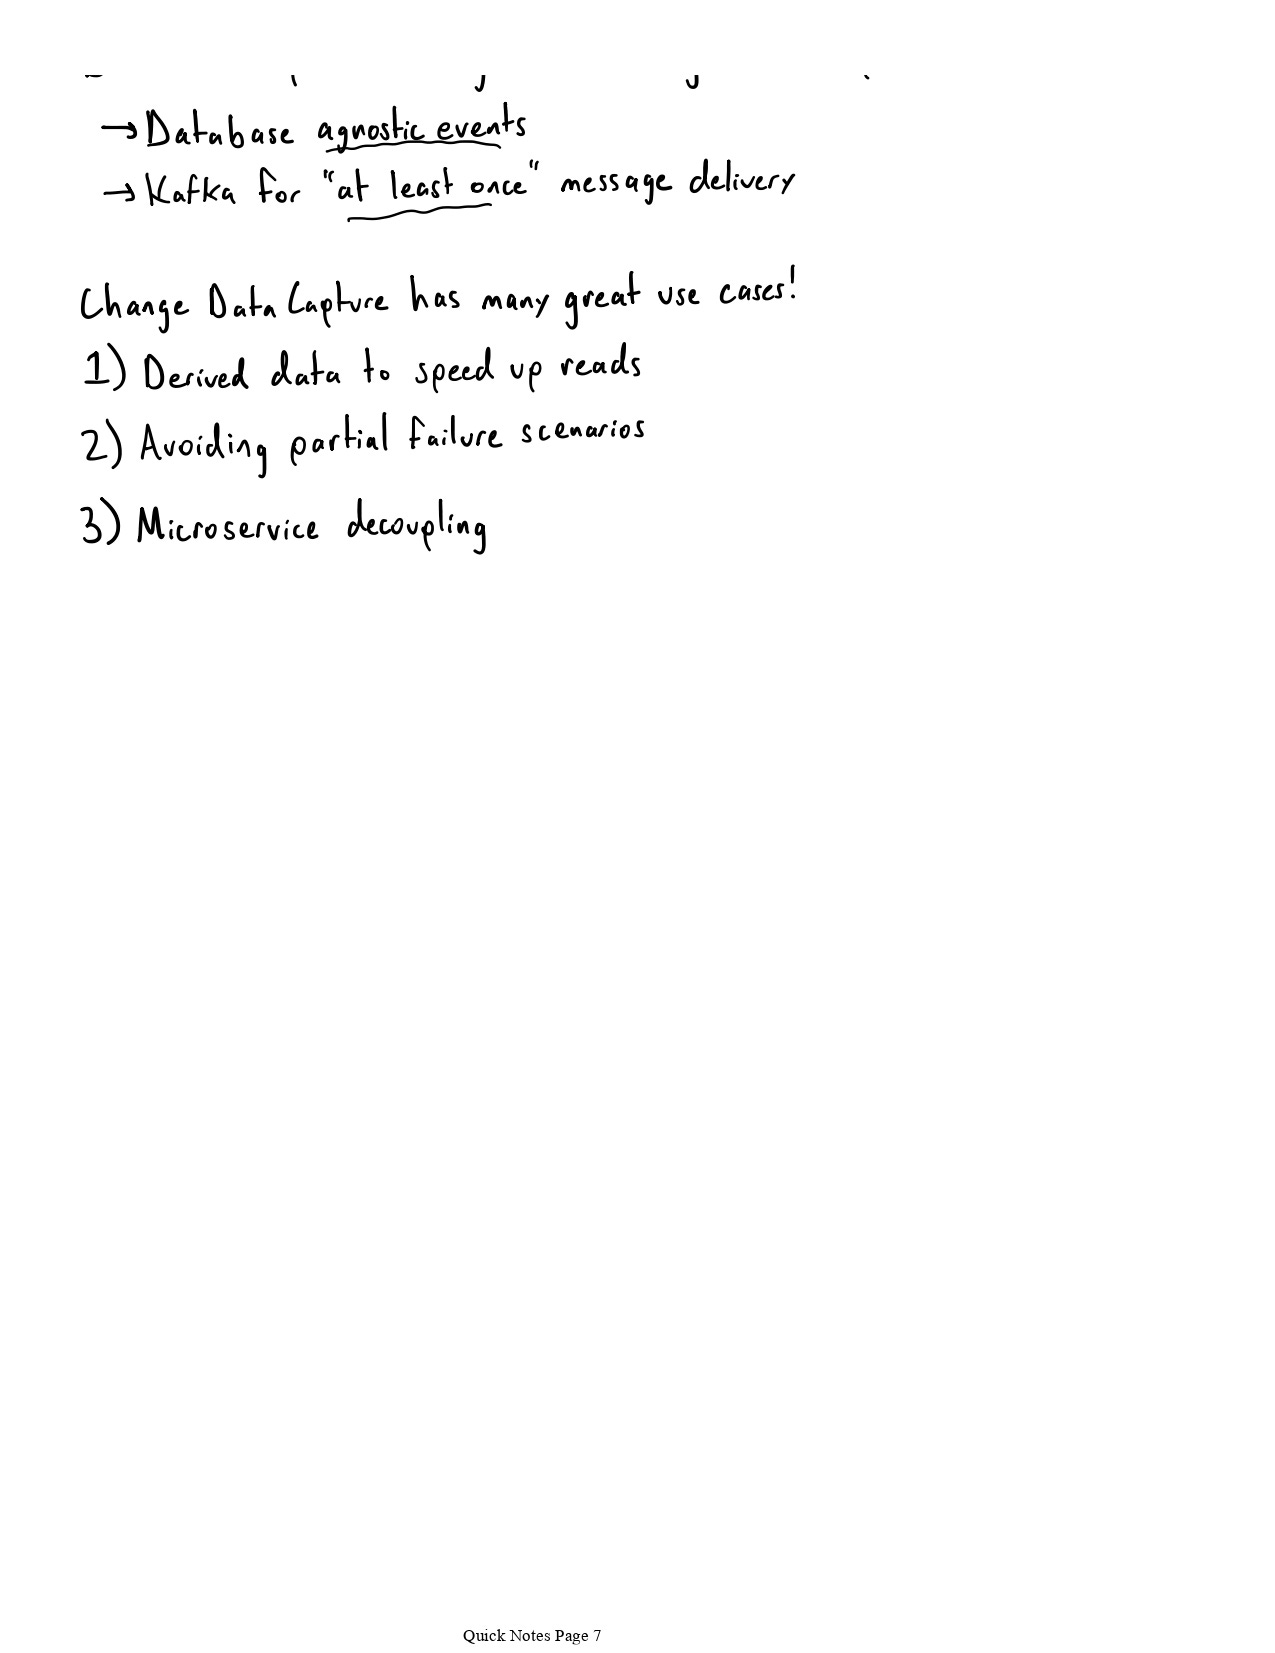 → Database agnostic events
→ Kafka for "at least once" message delivery
Change Data Capture has many great use cases!
1) Derived data to speed up reads
2) Avoiding partial failure scenarios
3) Microservice decoupling
Quick Notes Page 7